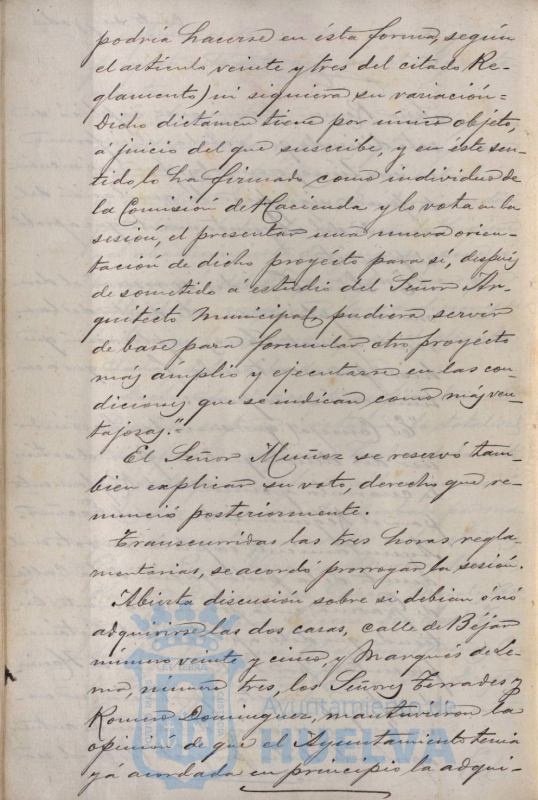 podría hacerse en ésta forma, según
el artículo veinte y tres del citado Re-
glamento) ni siquiera su variación=
Dicho dictámen tiene por único objéto,
á juicio del que suscribe, y en éste sen-
tido, lo ha firmado como individuo de
la Comisión de Hacienda y lo vota en la
sesión, el presentar una nueva orien-
tación de dicho proyécto para sí, después
de sometido á estudio del Señor Ar-
quitécto Municipal, pudiera servir
de base para formular otro proyécto
más ámplio y ejecutarse en las con-
diciones que se indican como más ven-
tajosas."=
El Señor Muñoz se reservó tam-
bien explicar su voto, derecho que re-
nunció posteriormente.
Transcurridas las tres horas regla-
mentarias, se acordó prorrogar la sesión.
Abierta discusión sobre si debian ó nó
adquirirse las dos casas, calle de Béjar
número veinte y cinco, y Marqués de Le-
ma, número tres, los Señores Terrades y
Romero Dominguez, mantuvieron la
opinión de que el Ayuntamiento tenia
yá acordada en principio la adqui-
Ayuntamiento de
HUELVA